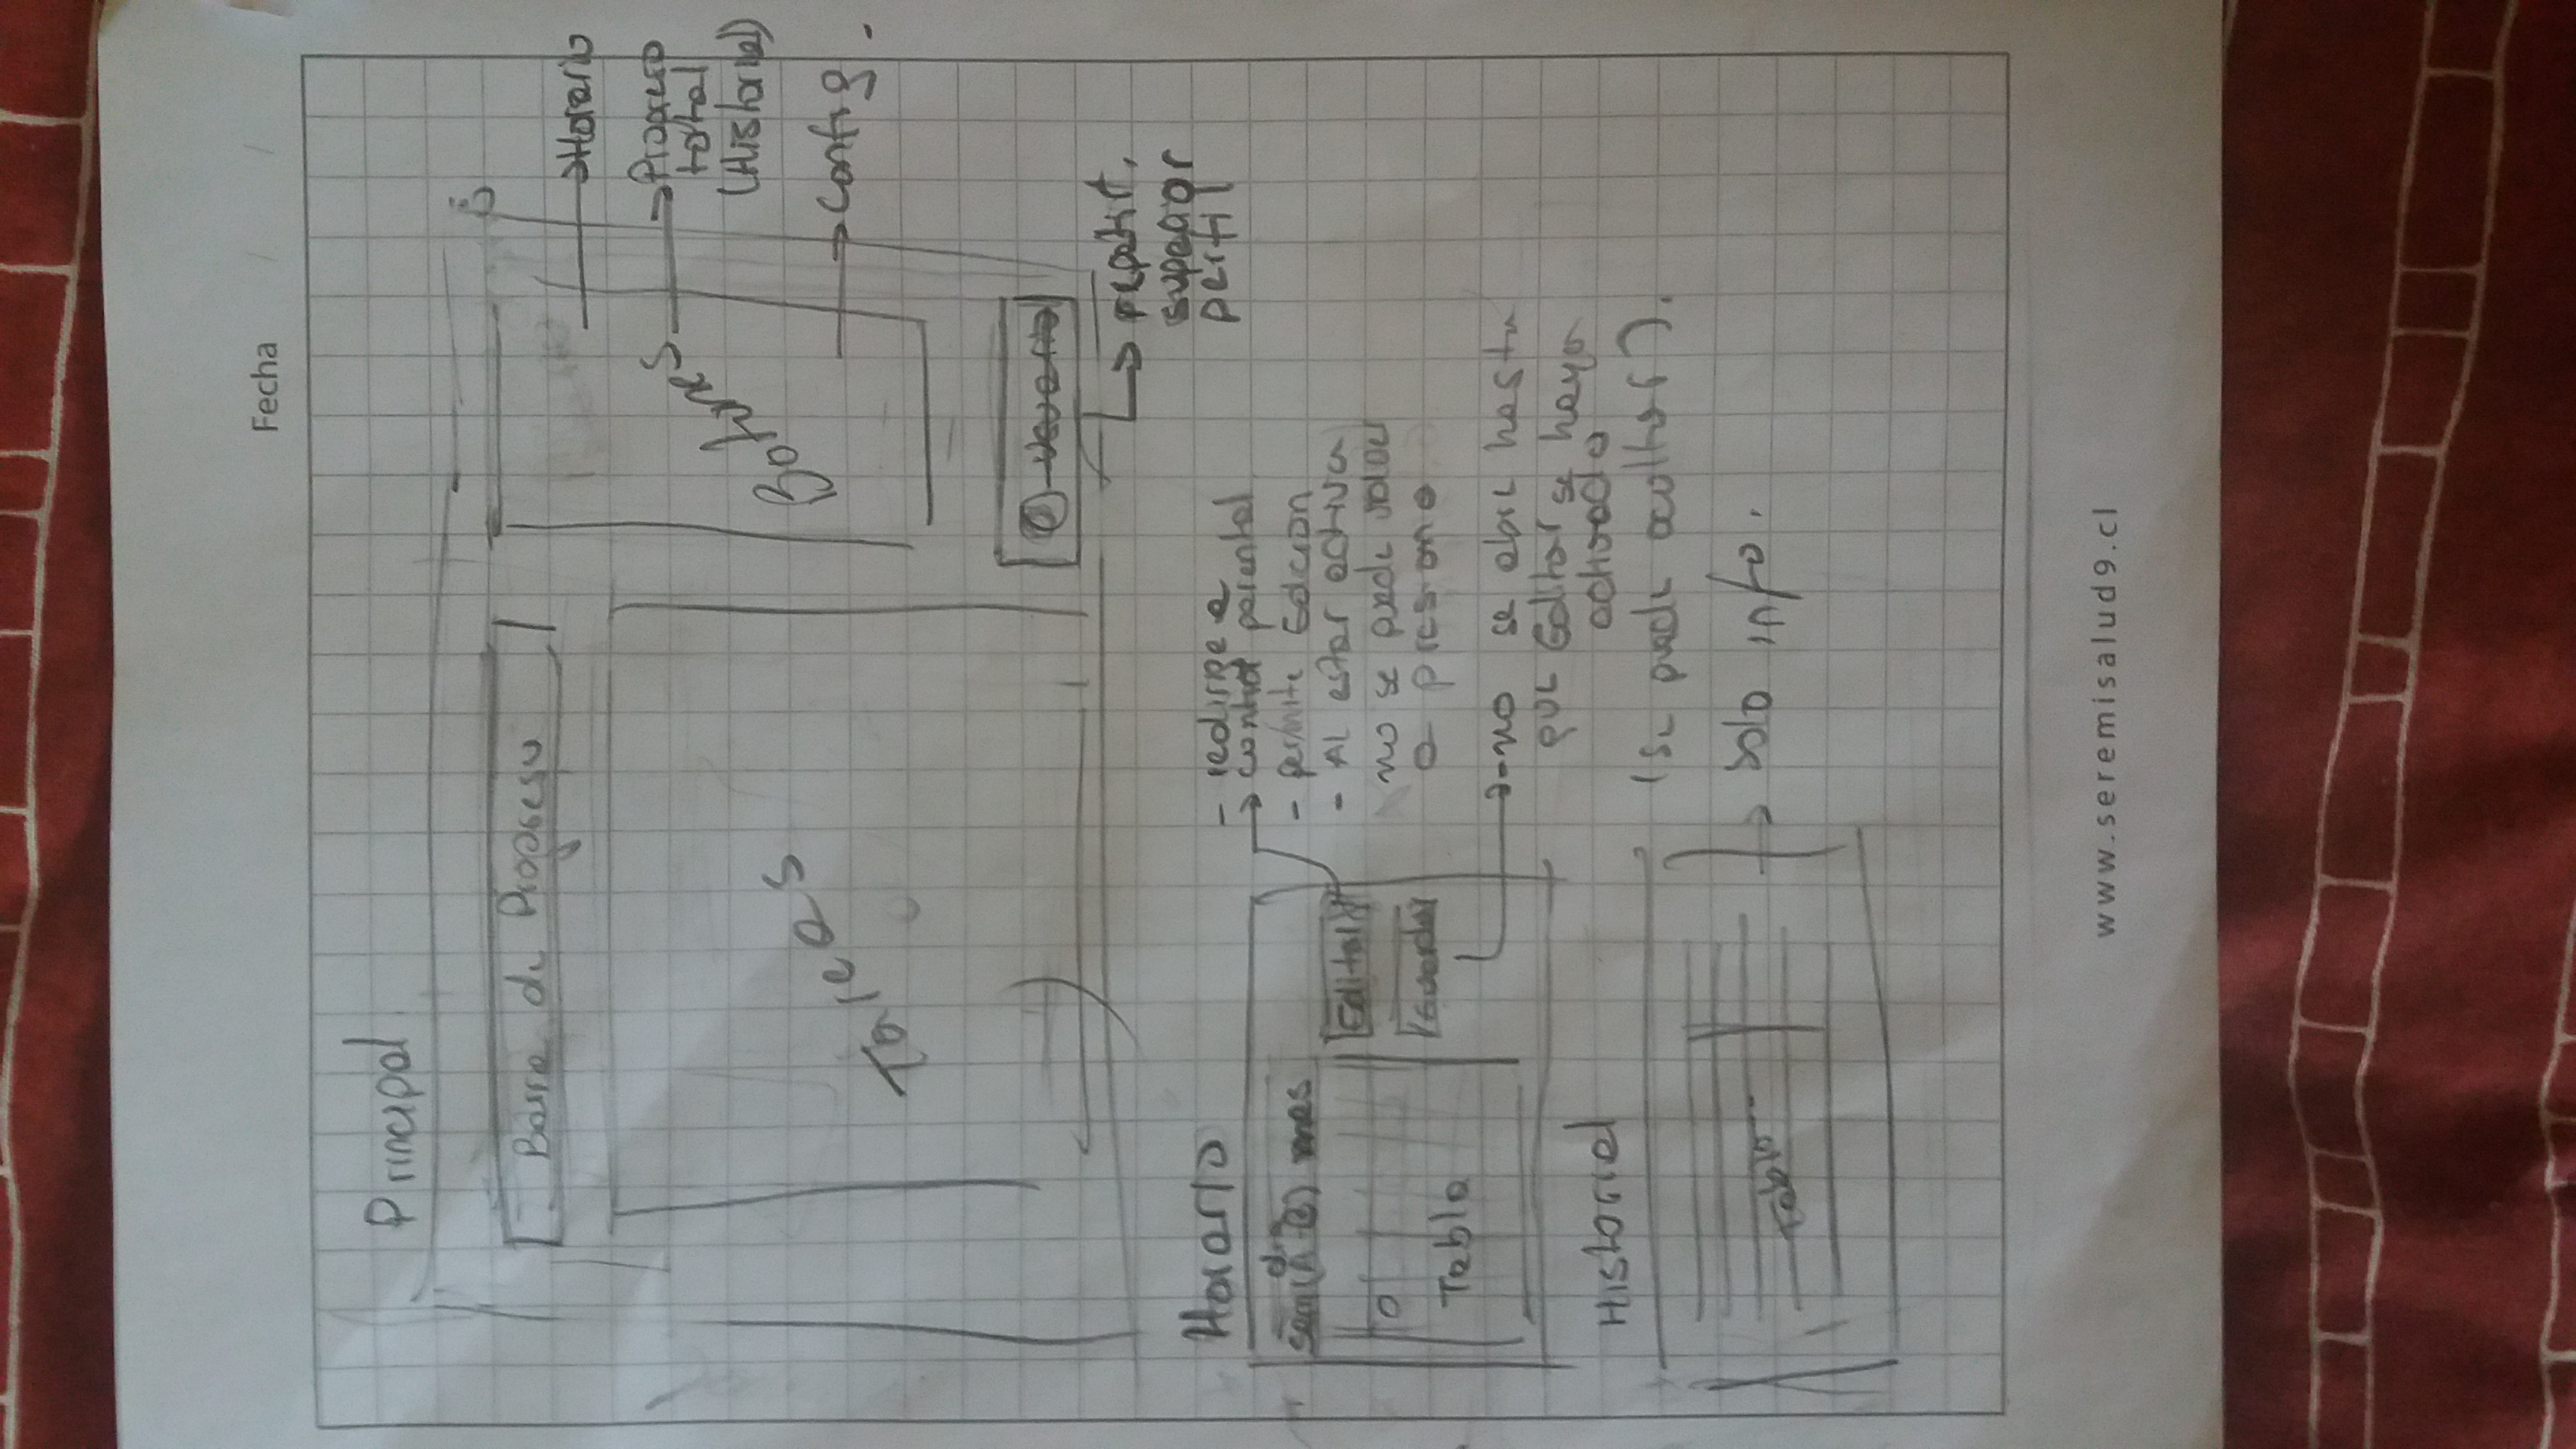 Fecha / /
Principal
Barra de Progreso
Tareas
Botones
Horario
Progreso
total
(Historial)
Config.
Usuario
superior
perfil
Horario
día
sem(A-B) mes
Editar
Guardar
Tabla
- redirige a
control parental
- permite Edición
- Al estar activa
no se puede volver
a presiona
- no se abre hasta
que Editar se haya
activado
(Se puede ocultar).
Historial
Tabla
Solo info.
www.seremisalud9.cl